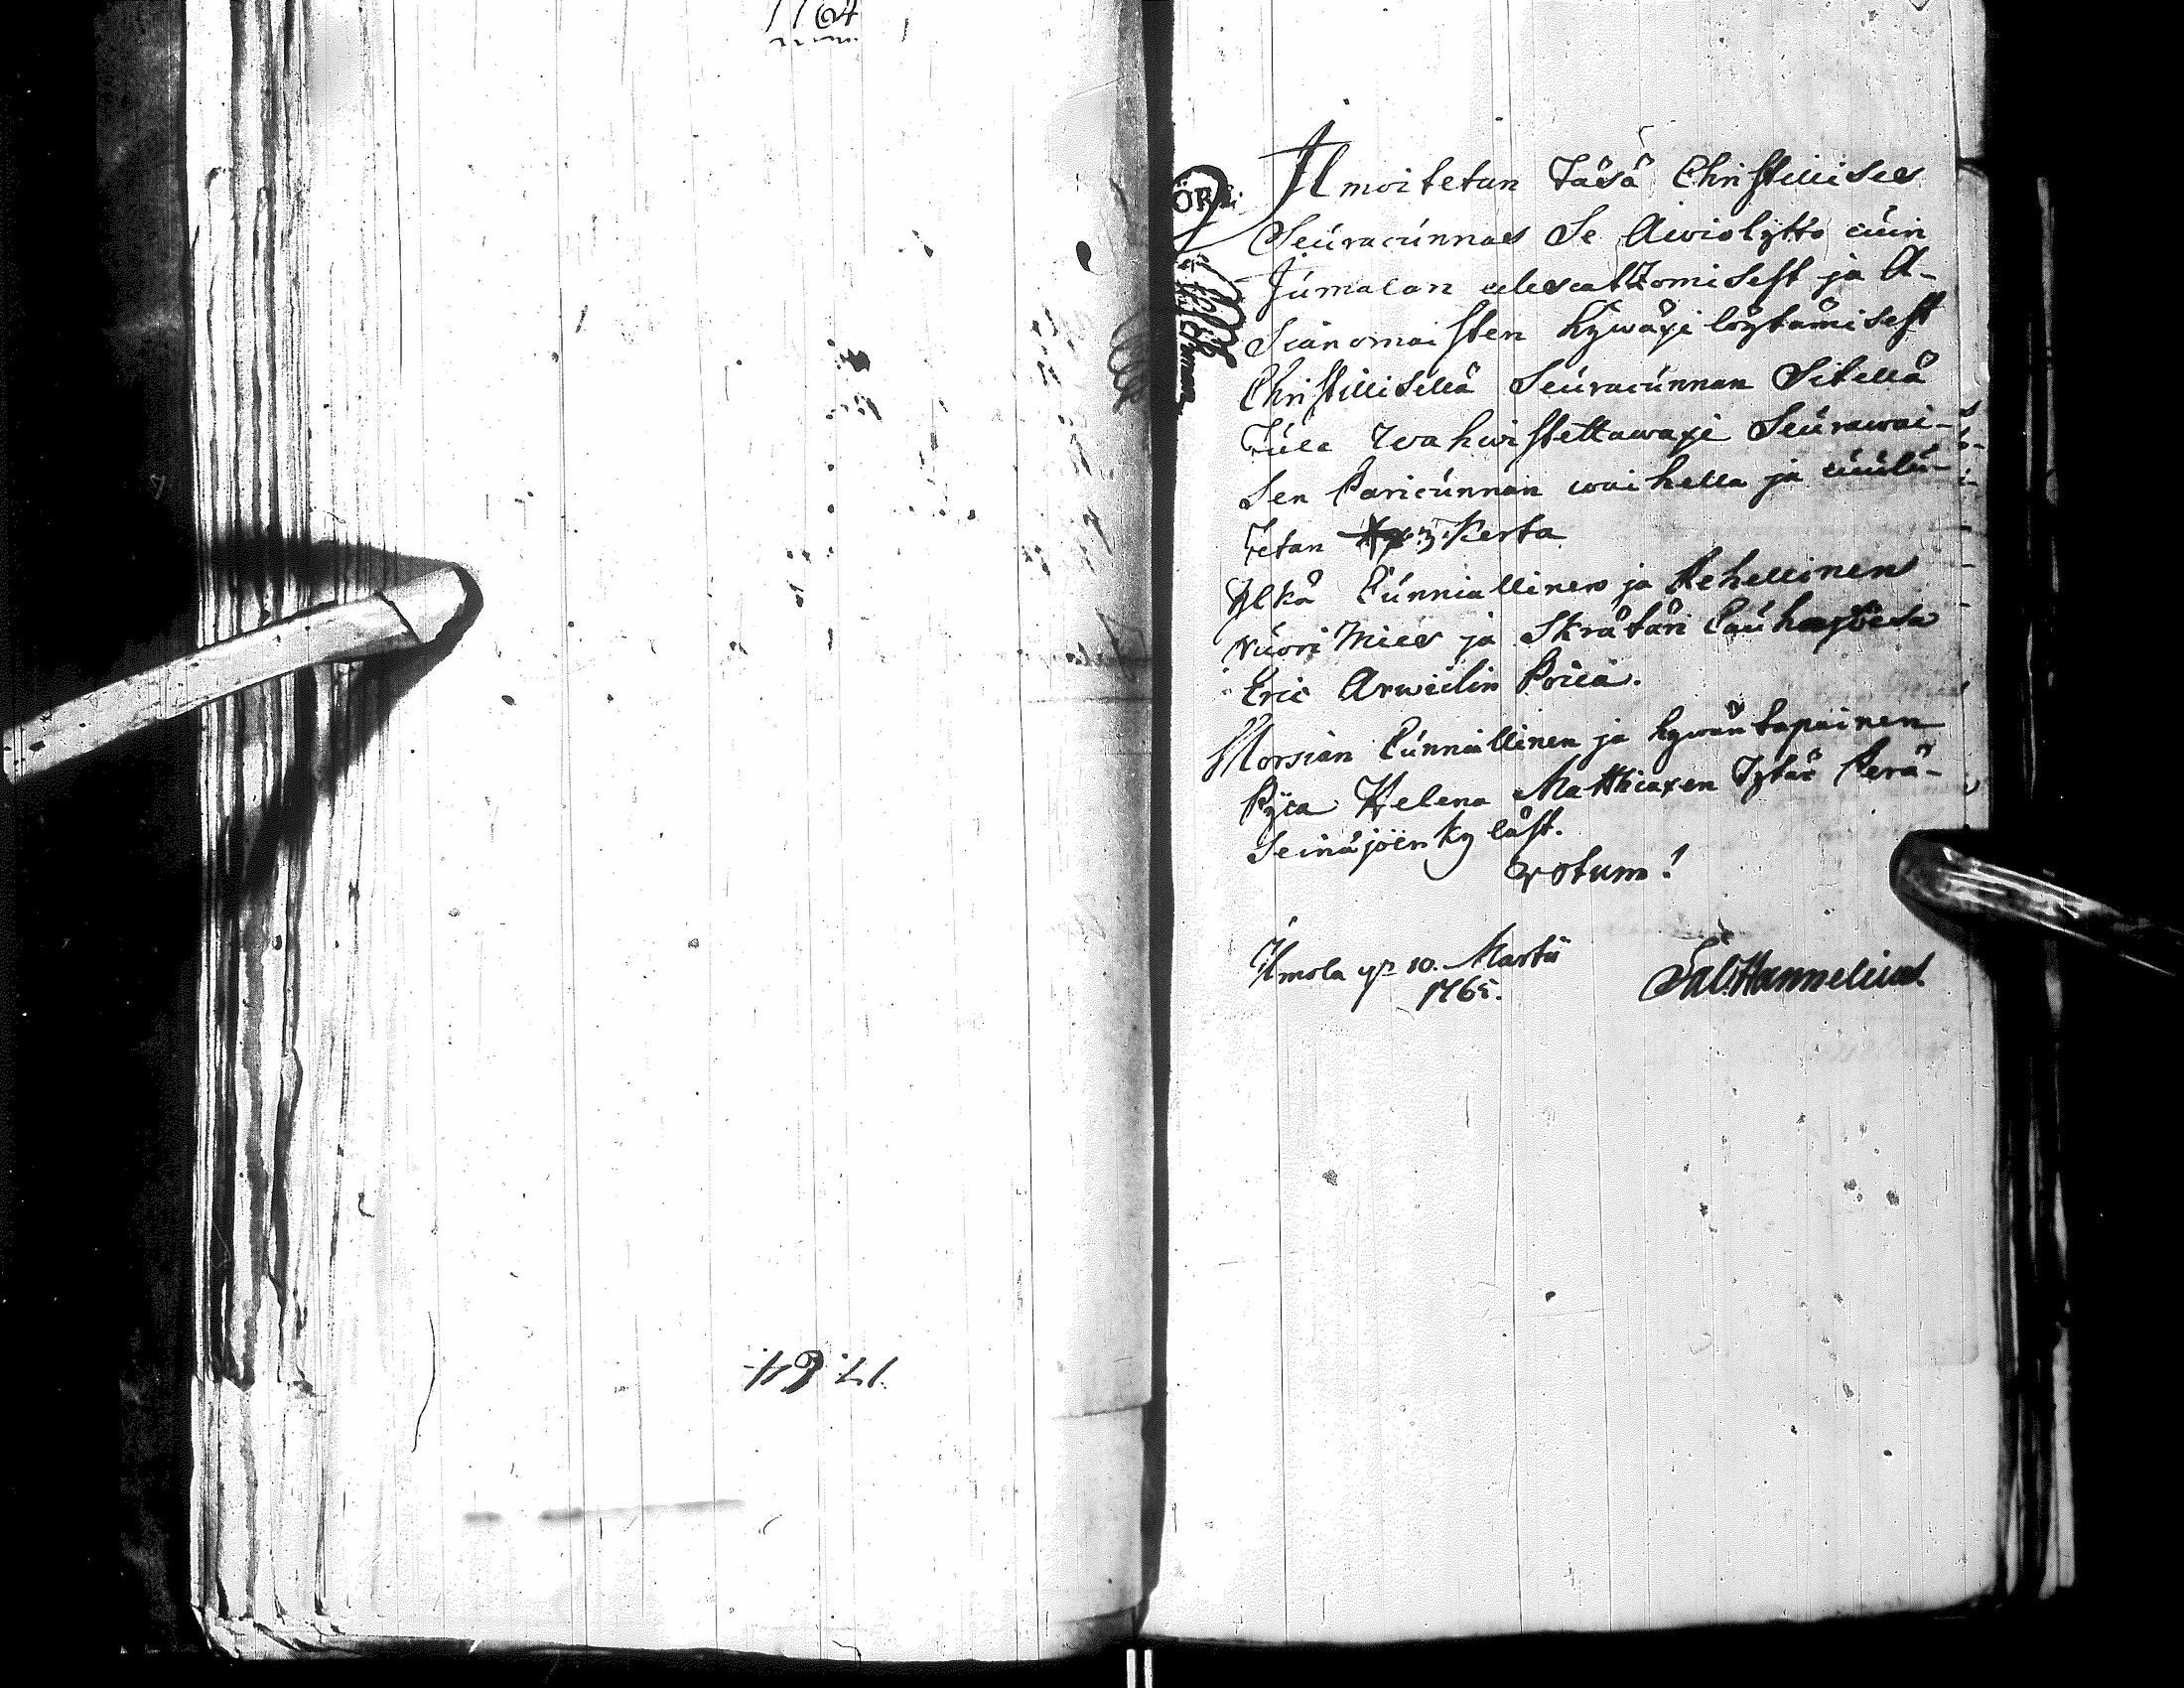 1764
17.64.
Ilmoitetan Täsä Christillises
Seuracunnas Se Awiokytto cuin
Jumalan edescattzomisest ja A-
sianomaisten hywäxi löytämisest
Christillisellä Seuracunnan Sitellä
Tule wahwistettawaxi Seurawai-
sen Paricunnan waihella ja cuulu-
tetan 3. Kerta
Ylkä Cunniallinen ja Rehellinen
nuori Mies ja Skrätäri Cauhajoelda
Eric Arwidin Poica.
Morsian Cunniallinen ja hywäntapainen
Pijca Helena Matthiaxen Tytär Perä-
Seinäjoen Kyläst.
Votum!
Ilmola 10. Martii
1765.
Sal. Hannelius.